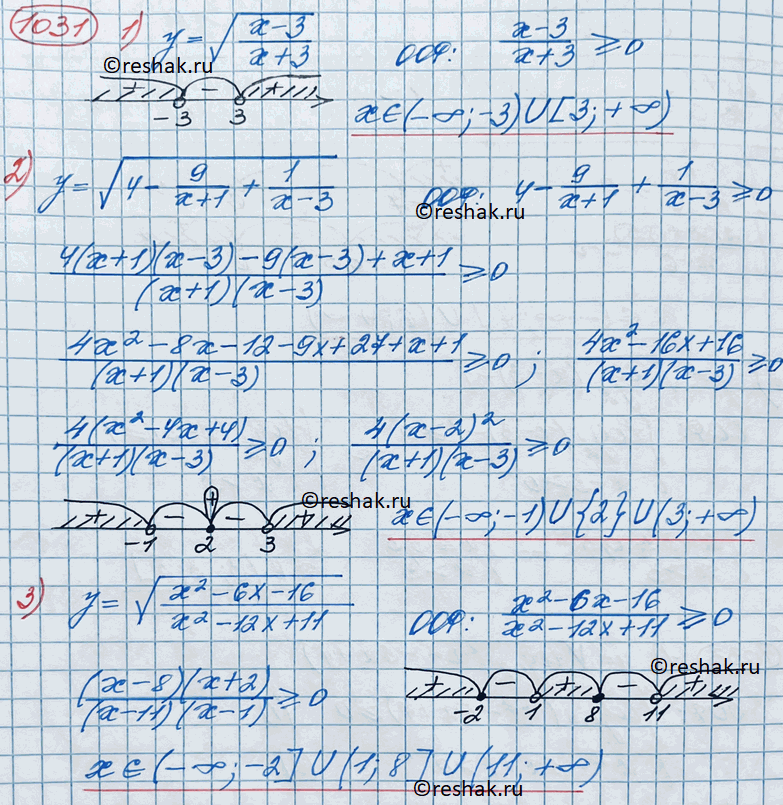 1031 1) y = √((x-3)/(x+3)) ООФ: (x-3)/(x+3) ≥ 0
©reshak.ru
+ - +
-3 3 x∈(-∞;-3)∪[3;+∞)
2) y = √(4 - 9/(x+1) + 1/(x-3)) ООФ: 4 - 9/(x+1) + 1/(x-3) ≥ 0
©reshak.ru
(4(x+1)(x-3) - 9(x-3) + x+1)/((x+1)(x-3)) ≥ 0
(4x² - 8x - 12 - 9x + 27 + x + 1)/((x+1)(x-3)) ≥ 0 ; (4x² - 16x + 16)/((x+1)(x-3)) ≥ 0
(4(x² - 4x + 4))/((x+1)(x-3)) ≥ 0 ; (4(x-2)²)/((x+1)(x-3)) ≥ 0
©reshak.ru
+ - + - +
-1 2 3 x∈(-∞;-1)∪{2}∪(3;+∞)
3) y = √((x² - 6x - 16)/(x² - 12x + 11)) ООФ: (x² - 6x - 16)/(x² - 12x + 11) ≥ 0
©reshak.ru
((x-8)(x+2))/((x-11)(x-1)) ≥ 0 + - + - +
-2 1 8 11
x∈(-∞;-2]∪(1;8]∪(11;+∞)
©reshak.ru